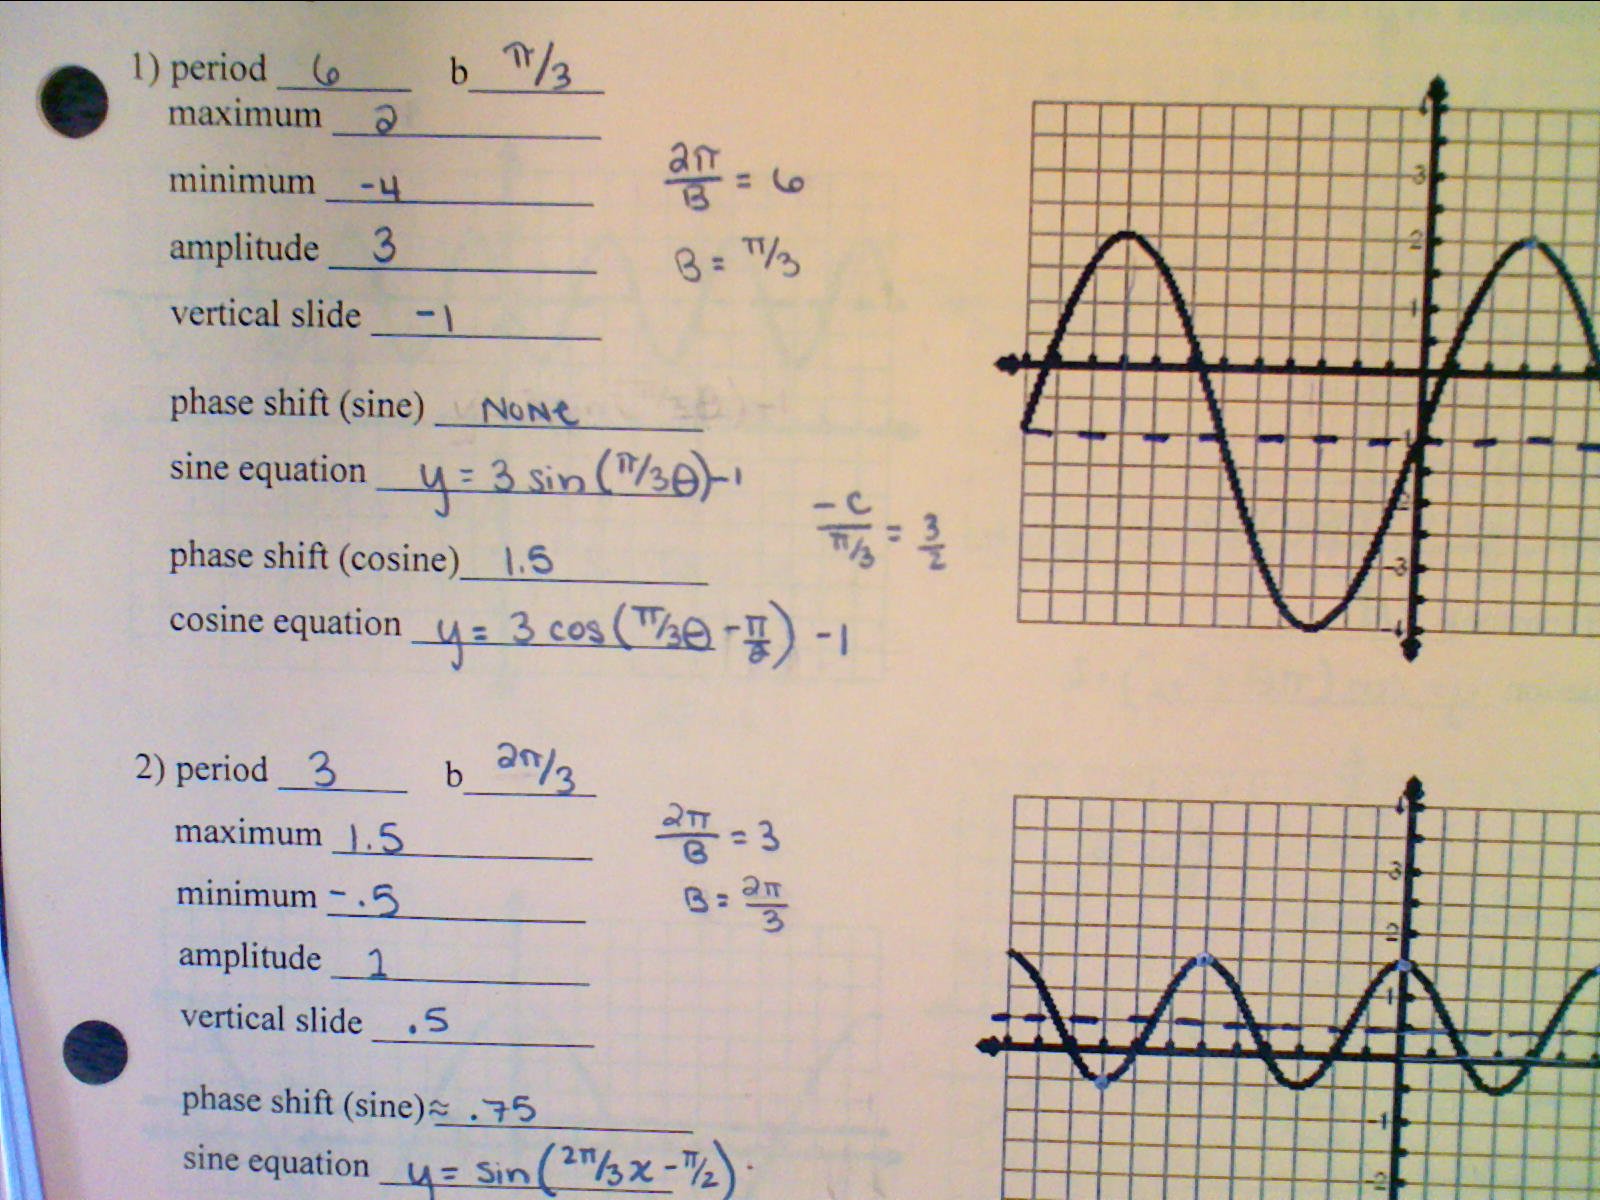 1) period 6 b π/3
maximum 2
minimum -4
2π/B = 6
amplitude 3
B = π/3
vertical slide -1
phase shift (sine) None
sine equation y = 3 sin (π/3θ)-1
-c/π/3 = 3/2
phase shift (cosine) 1.5
cosine equation y = 3 cos (π/3θ - π/2) -1
3
2
1
-3
2) period 3 b 2π/3
maximum 1.5
2π/B = 3
minimum -.5
B = 2π/3
amplitude 1
vertical slide .5
phase shift (sine) ≈ .75
sine equation y = sin (2π/3x - π/2)
3
2
1
-1
-2